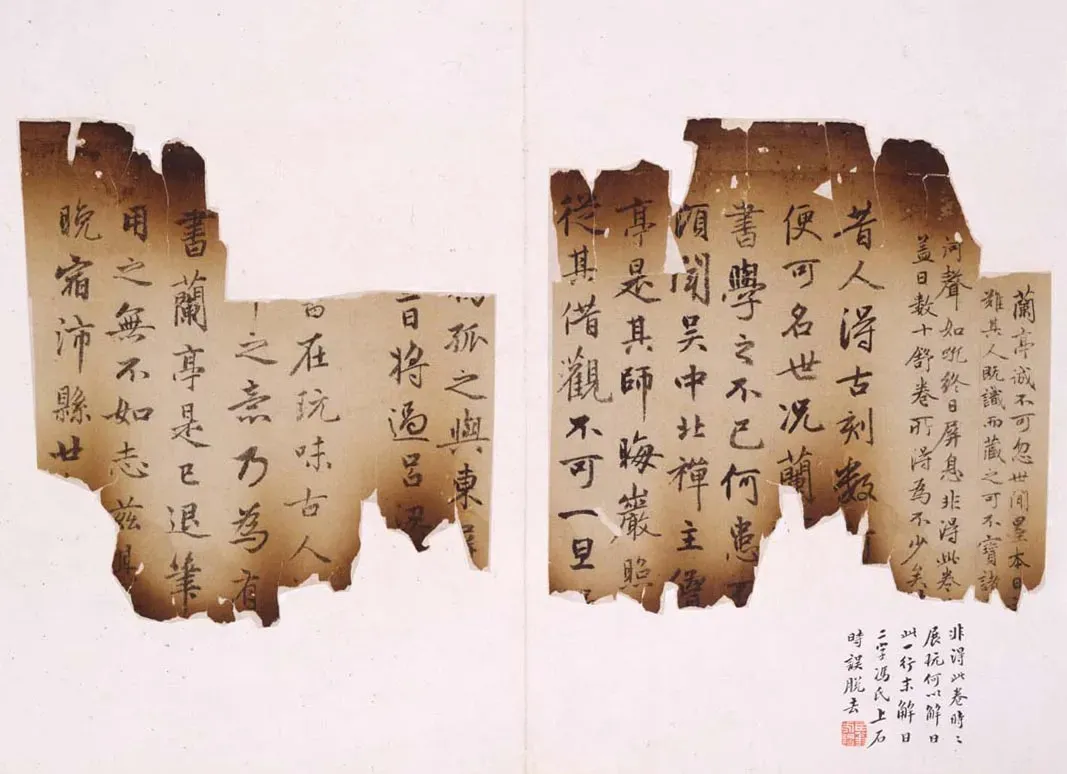 蘭亭誠不可忽世間墨本日
難其人既識而藏之可不寶諸
河聲如吼終日屏息非得此卷
盖日數十舒卷所得為不少矣
昔人得古刻數
便可名世况蘭
書學之不已何患
頃聞吴中北禪主僧
亭是其師晦巖照
從其借觀不可一旦
非得此卷時〻
展玩何以解日
此一行末解日
二字馮氏上石
時誤脱去
孤之與東
日將過吕
在玩味古人
之意乃為有
書蘭亭是已退筆
用之無不如志兹
晚宿沛縣廿